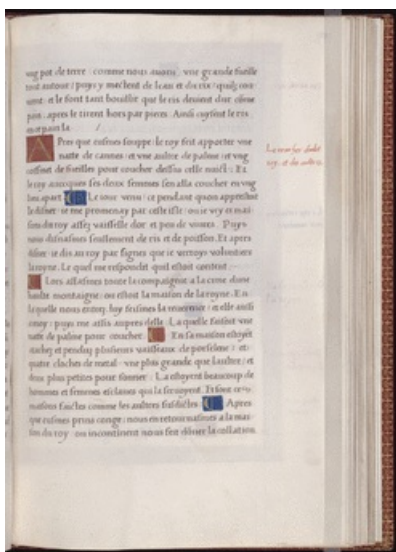 vng pot de terre comme nous auons vne grande fueille
tout autour / puys y mectent de leau et du ris / quilz cou-
urent et le font tant bouillir que le ris deuient dur cõme
pain . apres le tirent hors par pieces . Ainsi cuysent le ris
en ce pais la /
Apres que eusmes souppe : le roy feit apporter vne
natte de cannes et vne aultre de palme et vng
cussinet de fueilles pour coucher dessus celle nuict : Et
le roy auecques ses deux femmes sen alla coucher en vng
lieu apart . Le iour venu ce pendant quon apprestoit
le disner ie me promenay par ceste isle ou ie vey es mai-
sons du roy assez vaisselle dor et peu de viures . Puys
nous disnasmes seullement de ris et de poisson . Et apres
disner ie dis au roy par signes que ie verroys voluntiers
la royne . Le quel me respondit quil estoit content
Lors allasmes toute la compaignie a la cime dune
haulte montaigne / ou estoit la maison de la royne . En
la quelle nous entrez luy feismes la reuerence / et elle aussi
a moy puys me assis aupres delle . La quelle faisoit vne
natte de palme pour coucher . En sa maison estoyent
atachez et pendus plusieurs vaisseaux de porselene / et
quatre cloches de metal vne plus grande que laultre et
deux plus petites pour sonner . La estoyent beaucoup de
hommes et femmes esclaues qui la seruoyent . Et sont ces
maisons faictes comme les aultres susdictes . Apres
que eusmes prins conge : nous en retournasmes a la mai-
son du roy ou incontinent nous feit donner la collation